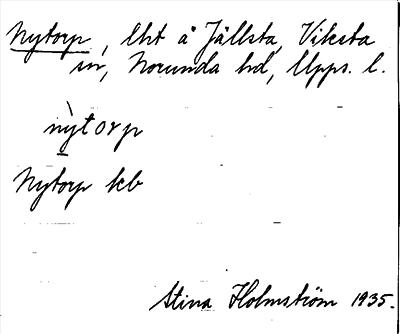 Nytorp, lht å Jällsta, Viksta
sn, Norunda hd, Upps. l.
nỳtorp
Nytorp kb
Stina Holmström 1935.